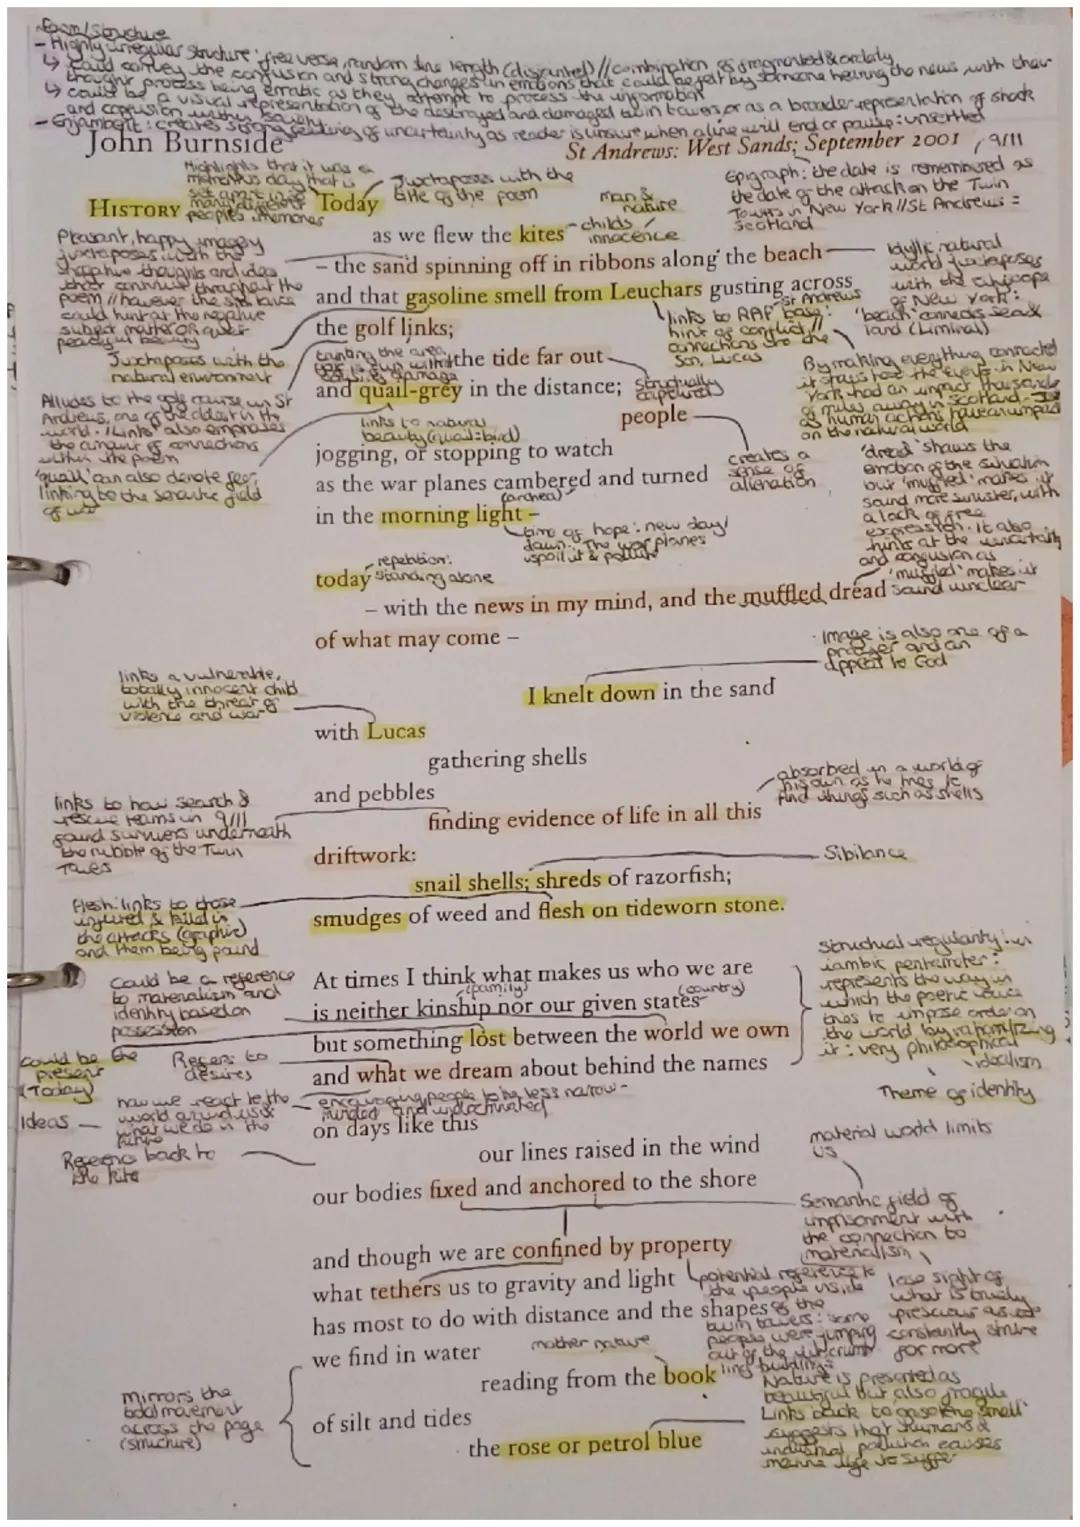 Form/Structure
- Highly irregular structure: free verse, random line length (disjointed) // combination of fragmented & orderly
↳ could convey the confusion and strong changes in emotions that could be felt by someone hearing the news with their
thought process being erratic as they attempt to process the information
↳ could be a visual representation of the destroyed and damaged twin towers or as a broader representation of shock
and confusion within society
- Enjambent: creates strong feeling of uncertainty as reader is unsure when a line will end or pause: unsettled
John Burnside
St Andrews: West Sands; September 2001 / 9/11
Highlights that it was a
momentous day that is
set apart in so
many different
peoples memories
Juxtaposes with the
title of the poem
Epigraph: the date is remembered as
the date of the attack on the Twin
Towers in New York // St Andrews =
Scotland
HISTORY
Today
man &
nature
as we flew the kites
childs
innocence
Pleasant, happy imagery
juxtaposes with the
thoughts and idea
that continue throughout the
poem // however the
could hint at the negative
subject matter or
peaceful beauty
– the sand spinning off in ribbons along the beach
and that gasoline smell from Leuchars gusting across
the golf links;
Idyllic natural
world juxtaposes
with the
of New York:
'beach' connects sea &
land (Liminal)
links to RAF base: St Andrews
hint of conflict //
connections to the
Son, Lucas
Juxtaposes with the
natural environment
the tide far out
and quail-grey in the distance;
structurally
people
By making everything connected
it shows how the events in New
York had an impact thousands
of miles away in Scotland -
as human actions have an impact
on the natural world
Alludes to the golf course in St
Andrews, one of the oldest in the
world. 'Links' also emphasises
the amount of connections
within the poem
links to natural
beauty (quail = bird)
'quail' can also denote fear,
linking to the semantic field
of war
jogging, or stopping to watch
as the war planes cambered and turned
(arched)
in the morning light –
creates a
sense of
alienation
time of hope: new day/
dawn. The war planes
spoil it & pollute
'dread' shows the
emotion of the situation
but 'muffled' makes it
sound more sinister, with
a lack of free
expression. It also
hints at the uncertainty
and confusion as
'muffled' makes it
sound unclear
repetition:
standing alone
today
– with the news in my mind, and the muffled dread
of what may come –
Image is also one of a
prayer and an
appeal to God
I knelt down in the sand
links a vulnerable,
totally innocent child
with the threat of
violence and war
with Lucas
gathering shells
and pebbles
absorbed in a world of
his own as he tries to
find things such as shells
finding evidence of life in all this
links to how search &
rescue teams in 9/11
found survivors underneath
the rubble of the Twin
Towers
driftwork:
Sibilance
snail shells; shreds of razorfish;
smudges of weed and flesh on tideworn stone.
flesh: links to those
injured & killed in
the attacks (graphic)
and them being found
At times I think what makes us who we are
(family)
(country)
is neither kinship nor our given states
but something lost between the world we own
and what we dream about behind the names
on days like this
Structural regularity: in
iambic pentameter:
represents the way in
which the poetic voice
tries to impose order on
the world by rationalizing
it: very philosophical
idealism
Theme of identity
Could be a reference
to materialism and
identity based on
possession
could be the
present
(Today)
Refers to
desires
Ideas
how we react to the
world around us &
what we do in the
future
encouraging people to be less narrow-
minded and indoctrinated
Reference back to
the kite
our lines raised in the wind
our bodies fixed and anchored to the shore
material world limits
us
Semantic field of
imprisonment with
the connection to
materialism
and though we are confined by property
what tethers us to gravity and light
has most to do with distance and the shapes
we find in water
potential reference to
the people inside
of the
twin towers: some
people were jumping
out of the
buildings
lose sight of
what is truely
prescious as we
constantly strive
for more
mother nature
reading from the book
of silt and tides
the rose or petrol blue
Mirrors the
tidal movement
across the page
(structure)
Nature is presented as
beautiful but also fragile
Links back to 'gasoline smell'
suggests that humans &
industrial pollution causes
marine life to suffer